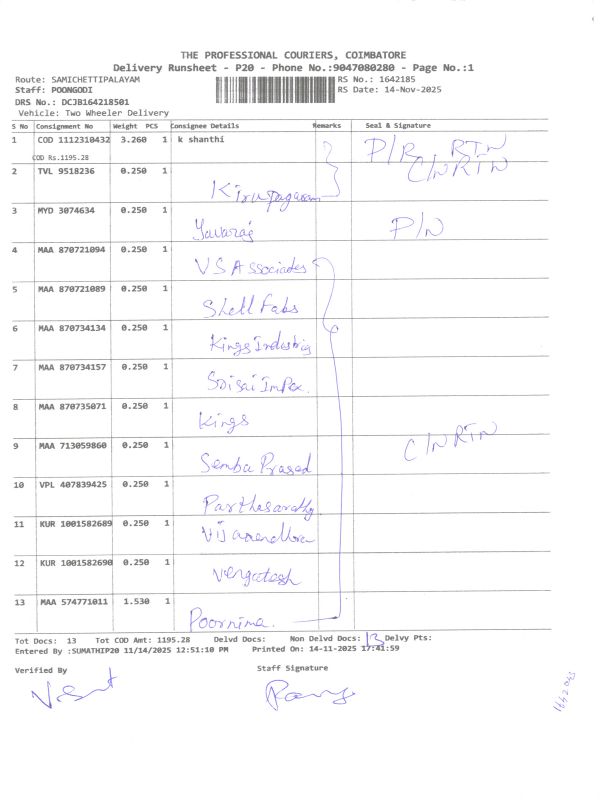 THE PROFESSIONAL COURIERS, COIMBATORE
Delivery Runsheet - P20 - Phone No.:9047080280 - Page No.:1
Route: SAMICHETTIPALAYAM RS No.: 1642185
Staff: POONGODI RS Date: 14-Nov-2025
DRS No.: DCJB164218501
Vehicle: Two Wheeler Delivery
S No Consignment No Weight PCS Consignee Details Remarks Seal & Signature
1 COD 1112310432 3.260 1 k shanthi P/R RTN
COD Rs.1195.28 C/N RTN
2 TVL 9518236 0.250 1 Kirupagaram
3 MYD 3074634 0.250 1 Yavaraj P/N
4 MAA 870721094 0.250 1 VS Associates
5 MAA 870721089 0.250 1 Shell Fabs
6 MAA 870734134 0.250 1 Kings
7 MAA 870734157 0.250 1 Impex.
8 MAA 870735071 0.250 1 Kings
9 MAA 713059860 0.250 1 Semba Prasad C/N RTN
10 VPL 407839425 0.250 1 Parthasarathy
11 KUR 1001582689 0.250 1
12 KUR 1001582690 0.250 1 Vengatesh
13 MAA 574771011 1.530 1 Poornima.
Tot Docs: 13 Tot COD Amt: 1195.28 Delvd Docs: Non Delvd Docs: 13 Delvy Pts:
Entered By :SUMATHIP20 11/14/2025 12:51:10 PM Printed On: 14-11-2025 17:41:59
Verified By Staff Signature